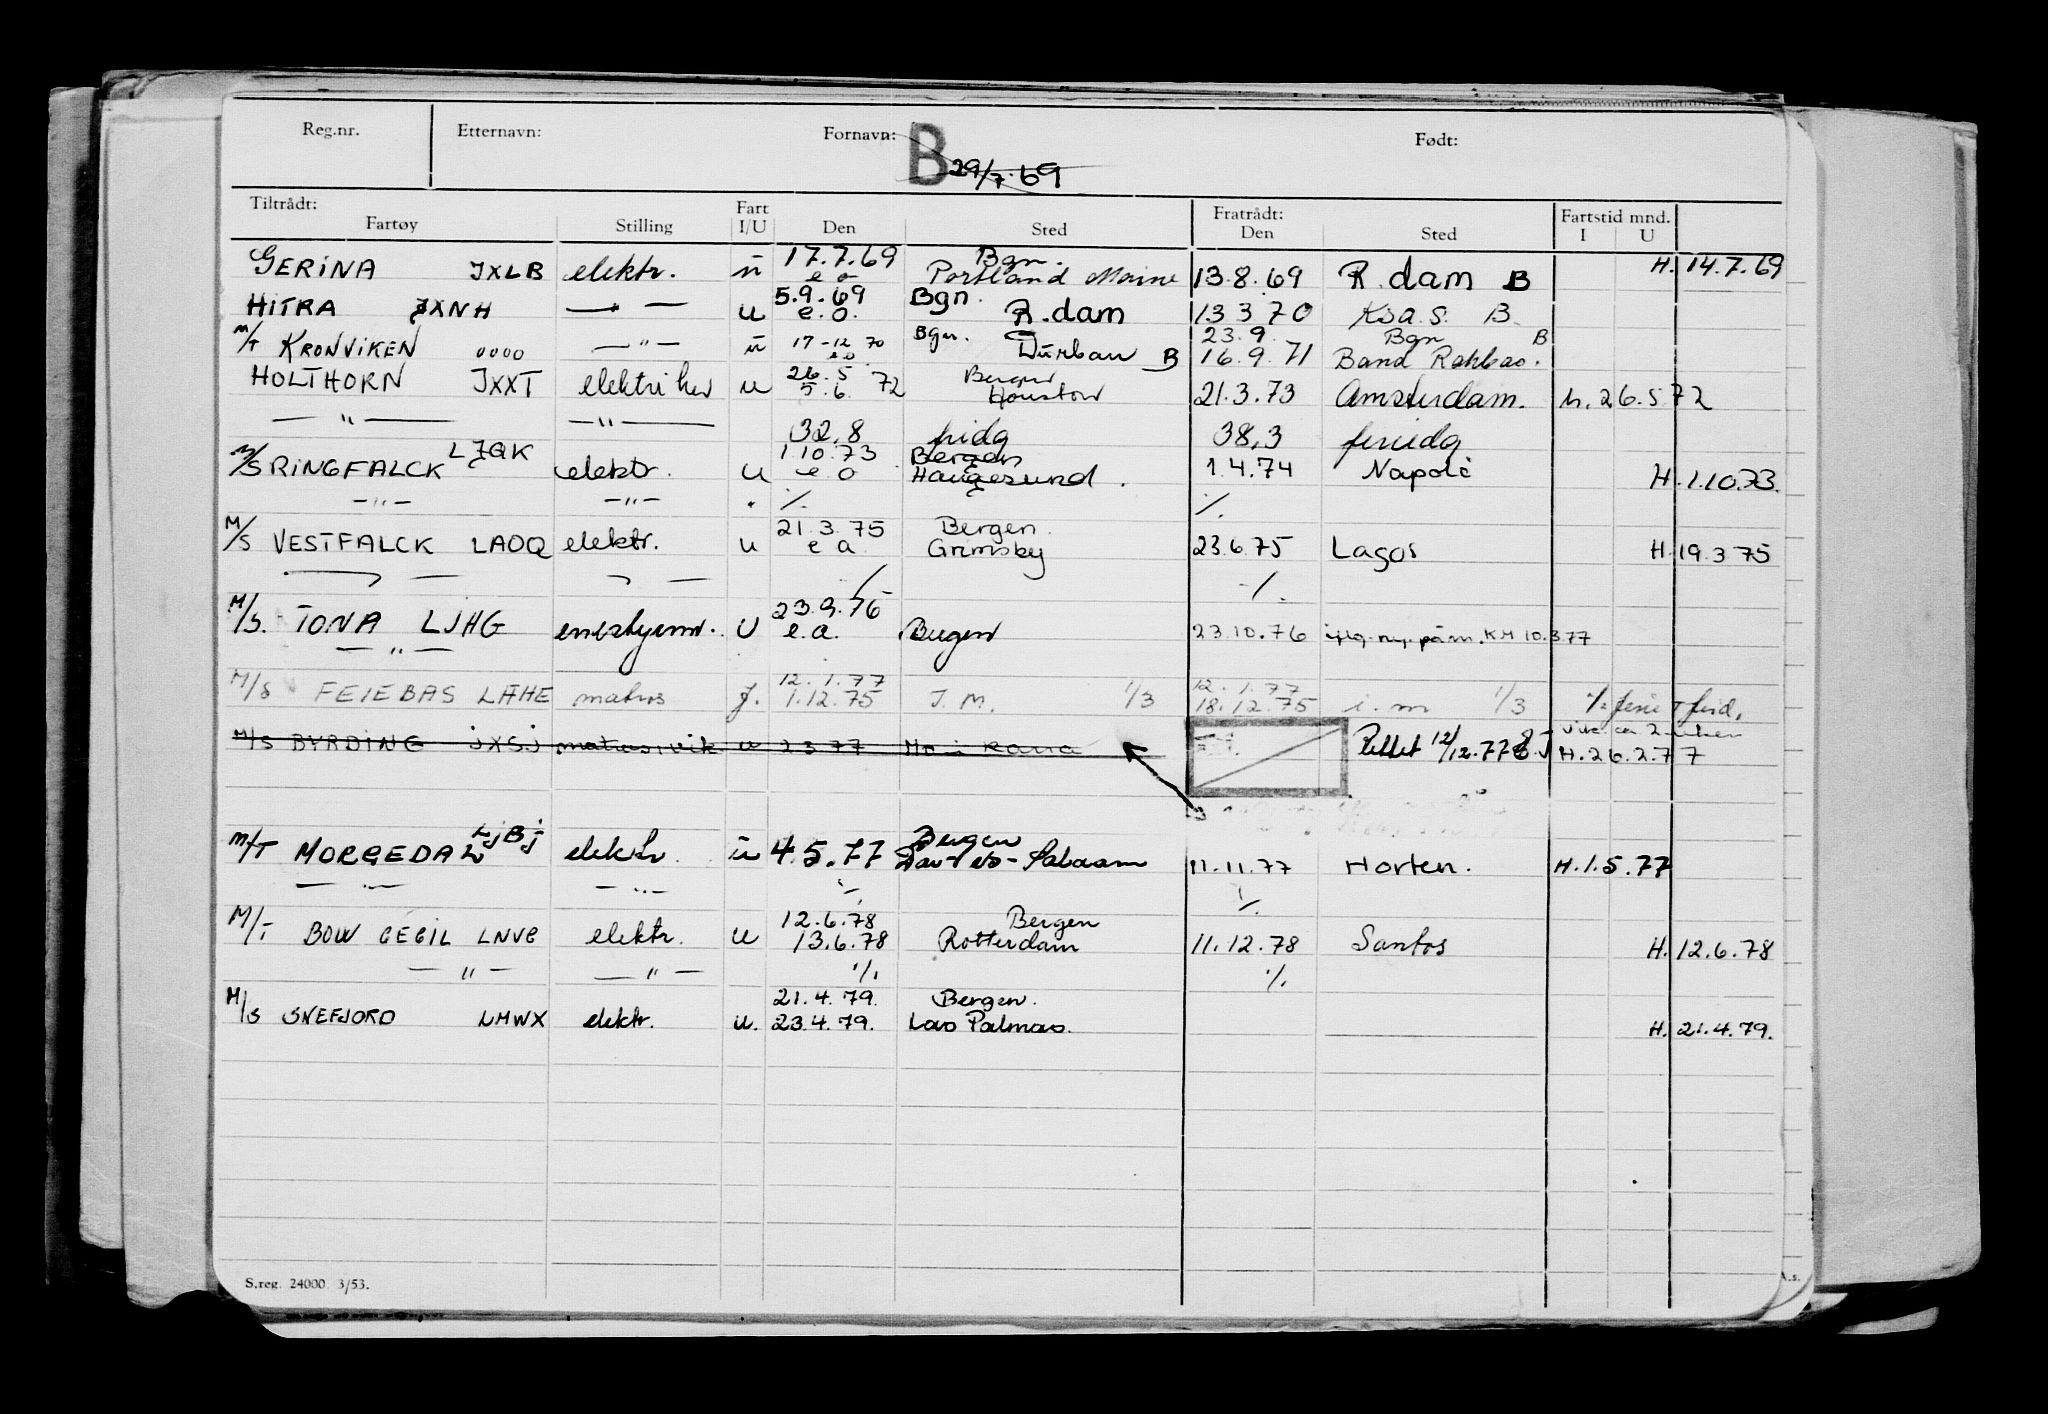 Reg.nr. Etternavn: Fornavn: Født:
B 29/7.69
Tiltrådt: Fart Fratrådt: Fartstid mnd.
Fartøy Stilling I/U Den Sted Den Sted I U
17.7.69 Bgn.
GERINA JXLB elektr. u e o Portland Maine 13.8.69 R.dam B H. 14.7.69
5.9.69 Bgn.
HITRA JXNH — — u e.o. R.dam 13 3 70 B
17-12 70 Bgn. 23.9. Bgn B
M/T KRONVIKEN oooo — " — u e o Durban B 16.9.71
26.5 Bergen
HOLTHORN JXXT elektriker u 5.6. 72 Houston 21.3.73 Amsterdam. h. 26.5 72
— " — — " — 32,8 fridg 38,3 feriedg
1 10.73 Bergen
M/S RINGFALCK LJQK elektr. u e o Haugesund. 1.4.74 Napoli H. 1.10.73.
— " — — " — " % %
21.3.75 Bergen.
M/S VESTFALCK LAOQ elektr. u e a Grimsby 23.6.75 Lagos H. 19.3 75
% %
23.9.76
M/S. TONA LJHG U e.a. Bergen 23.10.76 KH 10.3.77
— " —
12.1.77 12.1.77
M/S FEIEBAS LAHE matros J. 1.12.75 I.M. 1/3 18.12.75 i.m 1/3
M/S BYRDING JXSJ matros vik u 2 3 77 Mo i Rana Rettet 12/12.77 H. 26.2.77
Bergen
M/T MORGEDAL LJBJ elektr. u 4.5.77 Dar-es-Salaam 11.11.77 Horten. H. 1.5.77
— " — — " — % %
12.6.78 Bergen
M/T BOW CECIL LNVG elektr. u 13.6.78 Rotterdam 11.12.78 Santos H. 12.6.78
— " — — " — % %
21.4.79. Bergen.
M/S SNEFJORD LMWX elektr. u. 23.4.79. Las Palmas. H. 21.4.79.
S.reg. 24000 3/53.